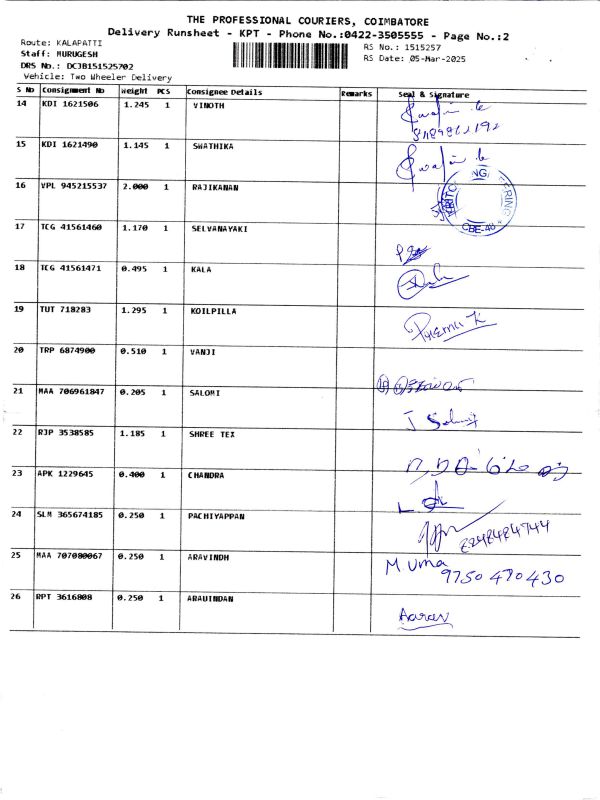 THE PROFESSIONAL COURIERS, COIMBATORE
Delivery Runsheet - KPT - Phone No.:0422-3505555 - Page No.:2
Route: KALAPATTI
Staff: MURUGESH
DRS No.: DCJB151525702
Vehicle: Two Wheeler Delivery
RS No.: 1515257
RS Date: 05-Mar-2025
S No Consignment No Weight PCS Consignee Details Remarks Seal & Signature
14 KDI 1621506 1.245 1 VINOTH
15 KDI 1621490 1.145 1 SWATHIKA
16 VPL 945215537 2.000 1 RAJIKANAN
CBE-
17 TCG 41561460 1.170 1 SELVANAYAKI
18 TCG 41561471 0.495 1 KALA
19 TUT 718283 1.295 1 KOILPILLA
20 TRP 6874900 0.510 1 VANJI
21 MAA 706961847 0.205 1 SALOMI
22 RJP 3538585 1.185 1 SHREE TEX
23 APK 1229645 0.400 1 CHANDRA
24 SLM 365674185 0.250 1 PACHIYAPPAN
25 MAA 707080067 0.250 1 ARAVINDH M. Uma
9750470430
26 RPT 3616808 0.250 1 ARAUINDAN Aarav